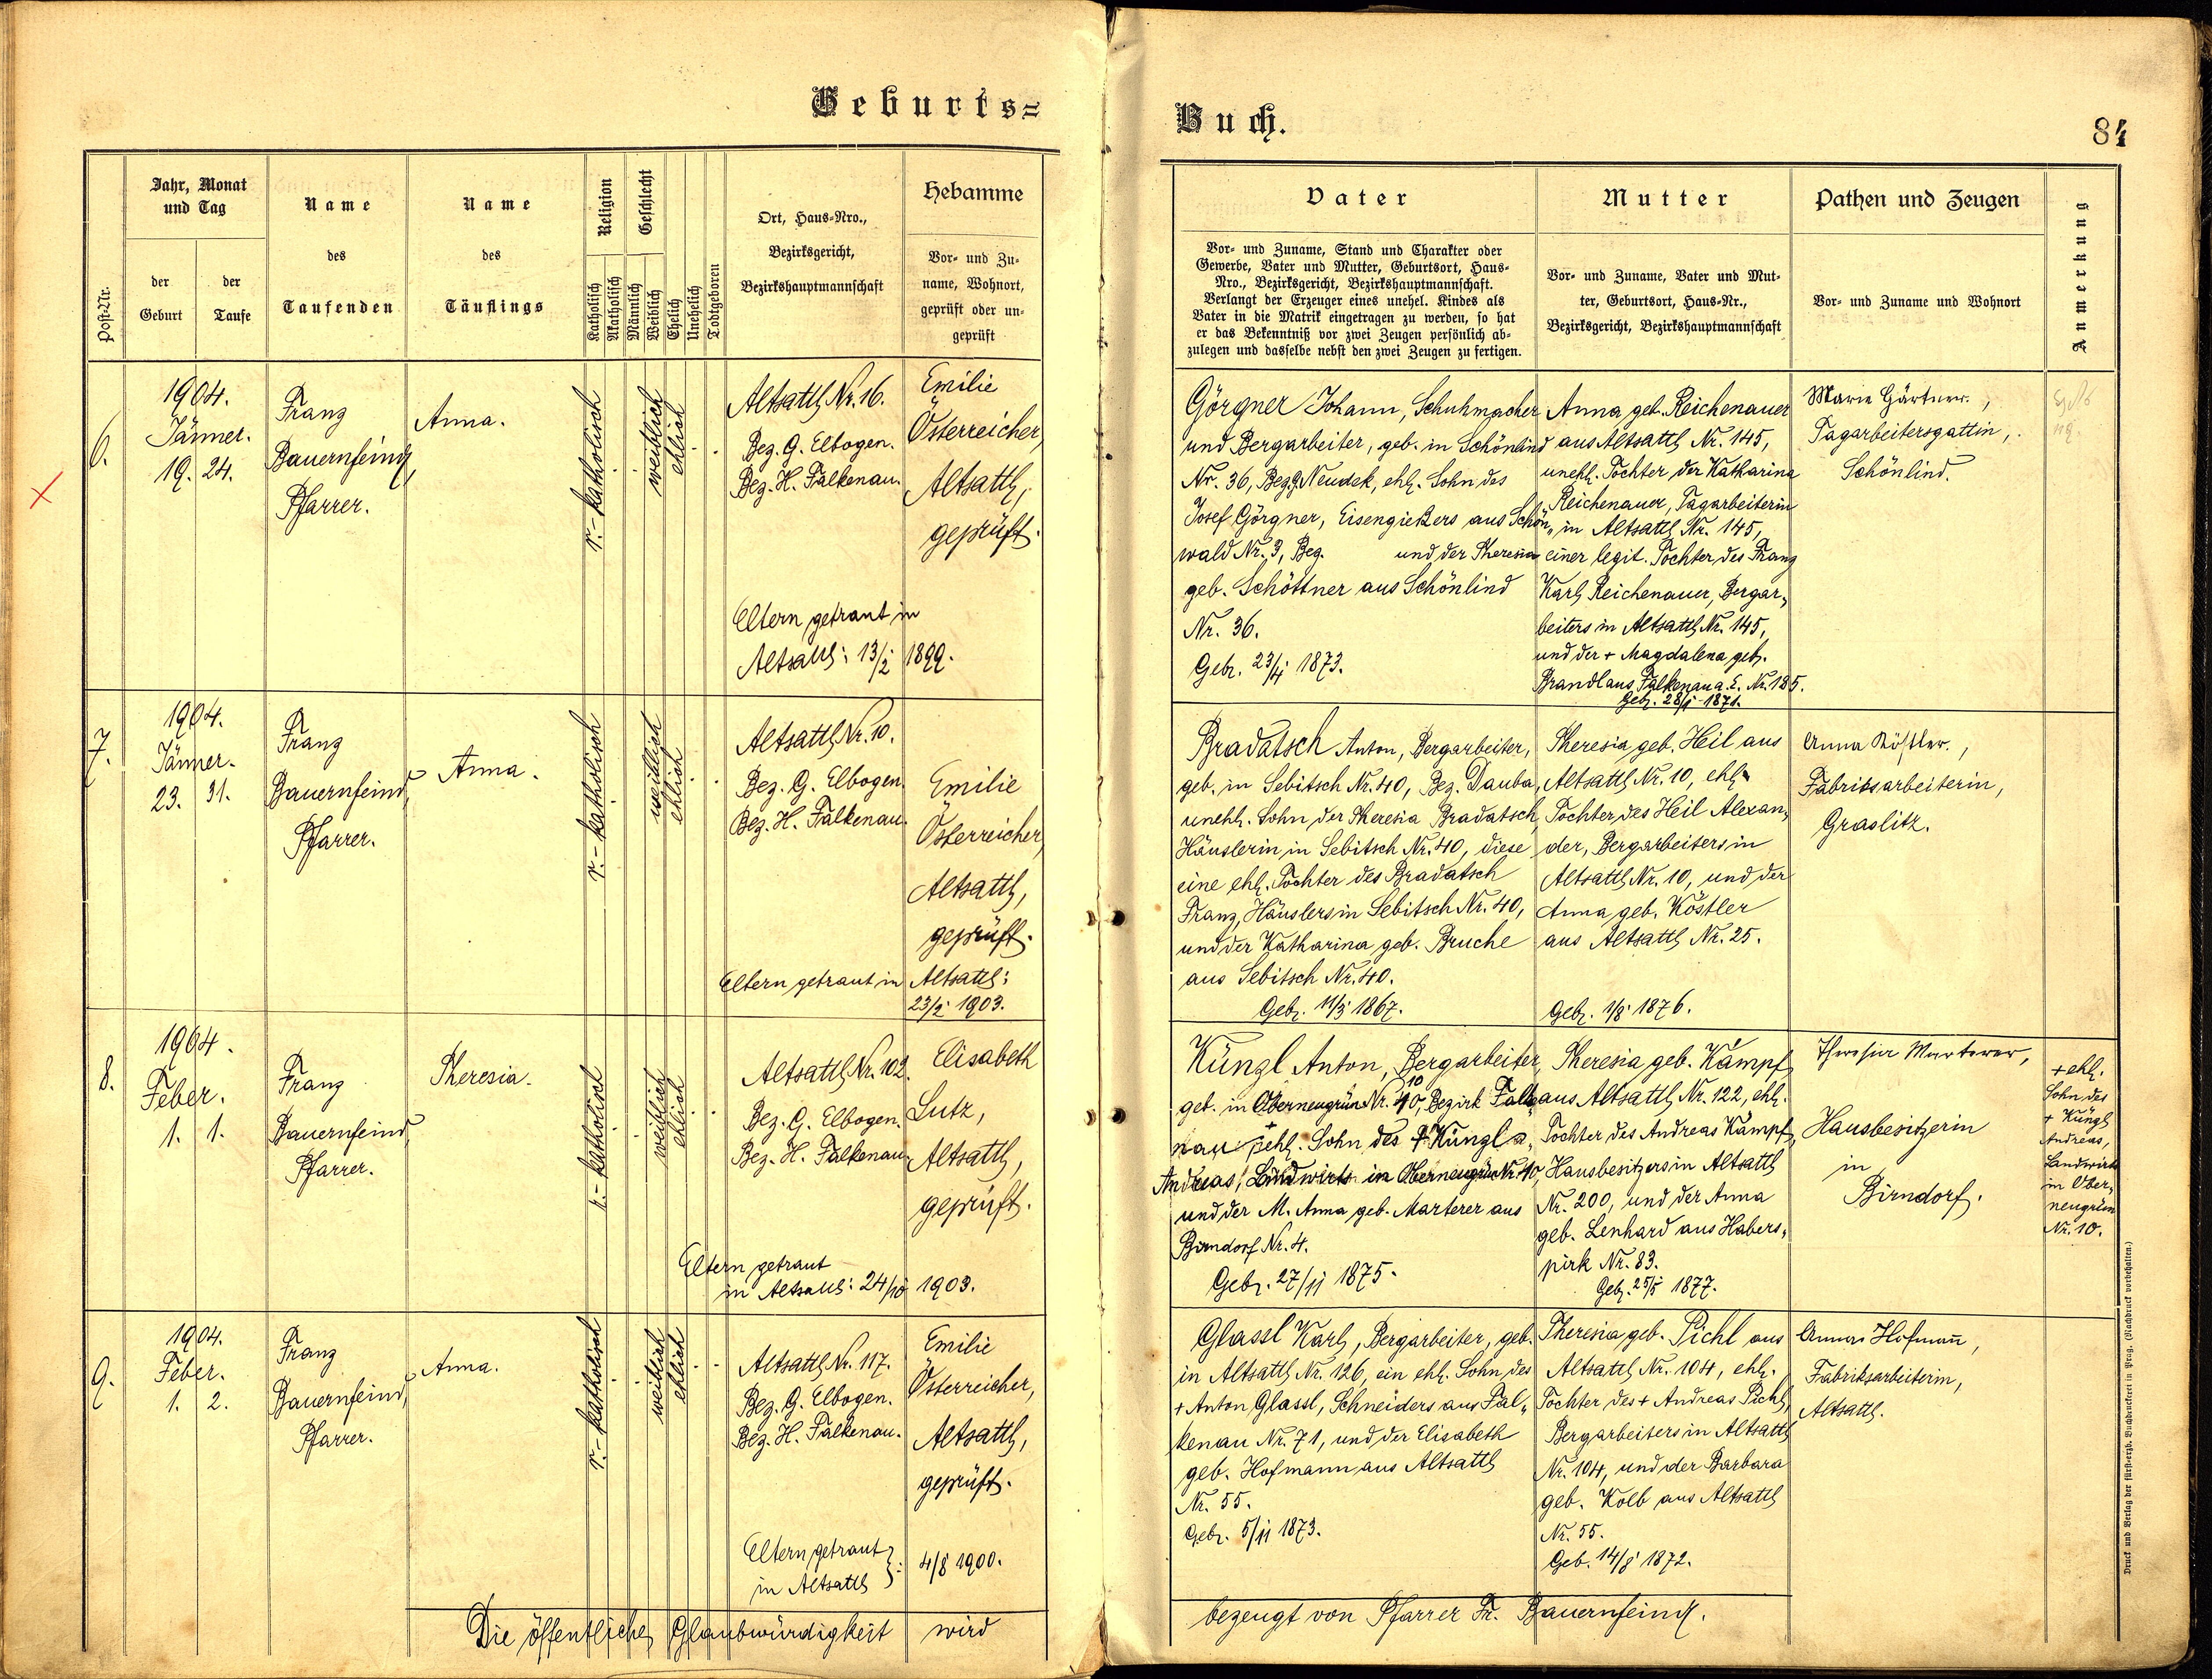 Geburts=
Jahr, Monat
und Tag
der
Geburt
der
Taufe
Post-Nr.
Name
des
Taufenden
Name
des
Täuflings
Religion
Katholisch
Akatholisch
Geschlecht
Männlich
Weiblich
Ehelich
Unehelich
Todtgeboren
Ort, Haus-Nro.,
Bezirksgericht,
Bezirkshauptmannschaft
Hebamme
Vor- und Zu-
name, Wohnort,
geprüft oder un-
geprüft
6.
1904.
Jänner.
19. 24.
Franz
Bauernfeind,
Pfarrer.
Anna.
r.-katholisch
weiblich
ehelich
Altsattl Nr. 16.
Bez. G. Elbogen.
Bez. H. Falkenau.
Emilie
Österreicher,
Altsattl,
geprüft.
Eltern getraut in
Altsattl: 13/2 1899.
7.
1904.
Jänner.
23. 31.
Franz
Bauernfeind,
Pfarrer.
Anna.
r.-katholisch
weiblich
ehelich
Altsattl Nr. 10.
Bez. G. Elbogen.
Bez. H. Falkenau.
Emilie
Österreicher,
Altsattl,
geprüft.
Eltern getraut in Altsattl:
23/2 1903.
8.
1904.
Feber.
1. 1.
Franz
Bauernfeind
Pfarrer.
Theresia.
r.-katholisch
weiblich
ehelich
Altsattl Nr. 102.
Bez. G. Elbogen.
Bez. H. Falkenau.
Elisabeth
Lutz,
Altsattl,
geprüft.
Eltern getraut
in Altsattl: 24/10 1903.
9.
1904.
Feber.
1. 2.
Franz
Bauernfeind,
Pfarrer.
Anna.
r.-katholisch
weiblich
ehelich
Altsattl Nr. 117.
Bez. G. Elbogen.
Bez. H. Falkenau.
Emilie
Österreicher,
Altsattl,
geprüft.
Eltern getraut
in Altsattl }: 4/8 1900.
Die öffentliche Glaubwürdigkeit wird
Buch.
84
Vater
Vor- und Zuname, Stand und Charakter oder
Gewerbe, Vater und Mutter, Geburtsort, Haus-
Nro., Bezirksgericht, Bezirkshauptmannschaft.
Verlangt der Erzeuger eines unehel. Kindes als
Vater in die Matrik eingetragen zu werden, so hat
er das Bekenntniß vor zwei Zeugen persönlich ab-
zulegen und dasselbe nebst den zwei Zeugen zu fertigen.
Mutter
Vor- und Zuname, Vater und Mut-
ter, Geburtsort, Haus-Nr.,
Bezirksgericht, Bezirkshauptmannschaft
Pathen und Zeugen
Vor- und Zuname und Wohnort
Anmerkung
Görgner Johann, Schuhmacher
und Bergarbeiter, geb. in Schönlind
Nr. 36, Bez. G. Neudek, ehl. Sohn des
Josef Görgner, Eisengießers aus Schön„
wald Nr. 3, Bez. und der Theresia
geb. Schöttner aus Schönlind
Nr. 36.
Geb. 23/4 1873.
Anna geb. Reichenauer
aus Altsattl Nr. 145,
unehl. Tochter der Katharina
Reichenauer, Tagarbeiterin
in Altsattl Nr. 145,
einer legit. Tochter des Franz
Karl Reichenauer, Bergar„
beiters in Altsattl Nr. 145,
und der + Magdalena geb.
Brandl aus Falkenau a. E. Nr. 185.
Geb. 28/1 1871.
Marie Gärtner.,
Tagarbeitersgattin,
Schönlind.
Bradatsch Anton, Bergarbeiter,
geb. in Sebitsch Nr. 40, Bez. Dauba,
unehl. Sohn der Theresia Bradatsch,
Häuslerin in Sebitsch Nr. 40, diese
eine ehl. Tochter des Bradatsch
Franz, Häuslers in Sebitsch Nr. 40,
und der Katharina geb. Bruche
aus Sebitsch Nr. 40.
Geb. 11/3 1867.
Theresia geb. Heil aus
Altsattl Nr. 10, ehl.
Tochter des Heil Alexan„
der, Bergarbeiters in
Altsattl Nr. 10, und der
Anna geb. Köstler
aus Altsattl Nr. 25.
Geb. 1/8 1876.
Anna Köstler.,
Fabriksarbeiterin,
Graslitz.
Küngl Anton, Bergarbeiter,
10
geb. in Oberneugrün Nr. 40, Bezirk Falke
nau + ehl. Sohn des + Küngl
Andreas, Landwirts in Oberneugrün Nr. 10,
und der M. Anna geb. Marterer aus
Birndorf Nr. 4.
Geb. 27/11 1875.
Theresia geb. Kämpf
aus Altsattl Nr. 122, ehl.
Tochter des Andreas Kämpf,
Hausbesitzers in Altsattl
Nr. 200, und der Anna
geb. Lenhard aus Habers„
pirk Nr. 83.
Geb. 25/5 1877.
Theresia Marterer,
Hausbesitzerin
in
Birndorf.
+ ehl.
Sohn des
+ Küngl
Andreas,
Landwirts
in Ober„
neugrün
Nr. 10.
Glassl Karl, Bergarbeiter, geb.
in Altsattl Nr. 126, ein ehl. Sohn des
+ Anton Glassl, Schneiders aus Fal„
kenau Nr. 71, und der Elisabeth
geb. Hofmann aus Altsattl
Nr. 55.
Geb. 5/11 1873.
Theresia geb. Pichl aus
Altsattl Nr. 104, ehl.
Tochter des + Andreas Pichl,
Bergarbeiters in Altsattl
Nr. 104, und der Barbara
geb. Kolb aus Altsattl
Nr. 55.
Geb. 14/8 1872.
Anna Hofmann,
Fabriksarbeiterin,
Altsattl.
bezeugt von Pfarrer Fr. Bauernfeind.
Druck und Verlag der fürst-erzb. Buchdruckerei in Prag. (Nachdruck vorbehalten.)